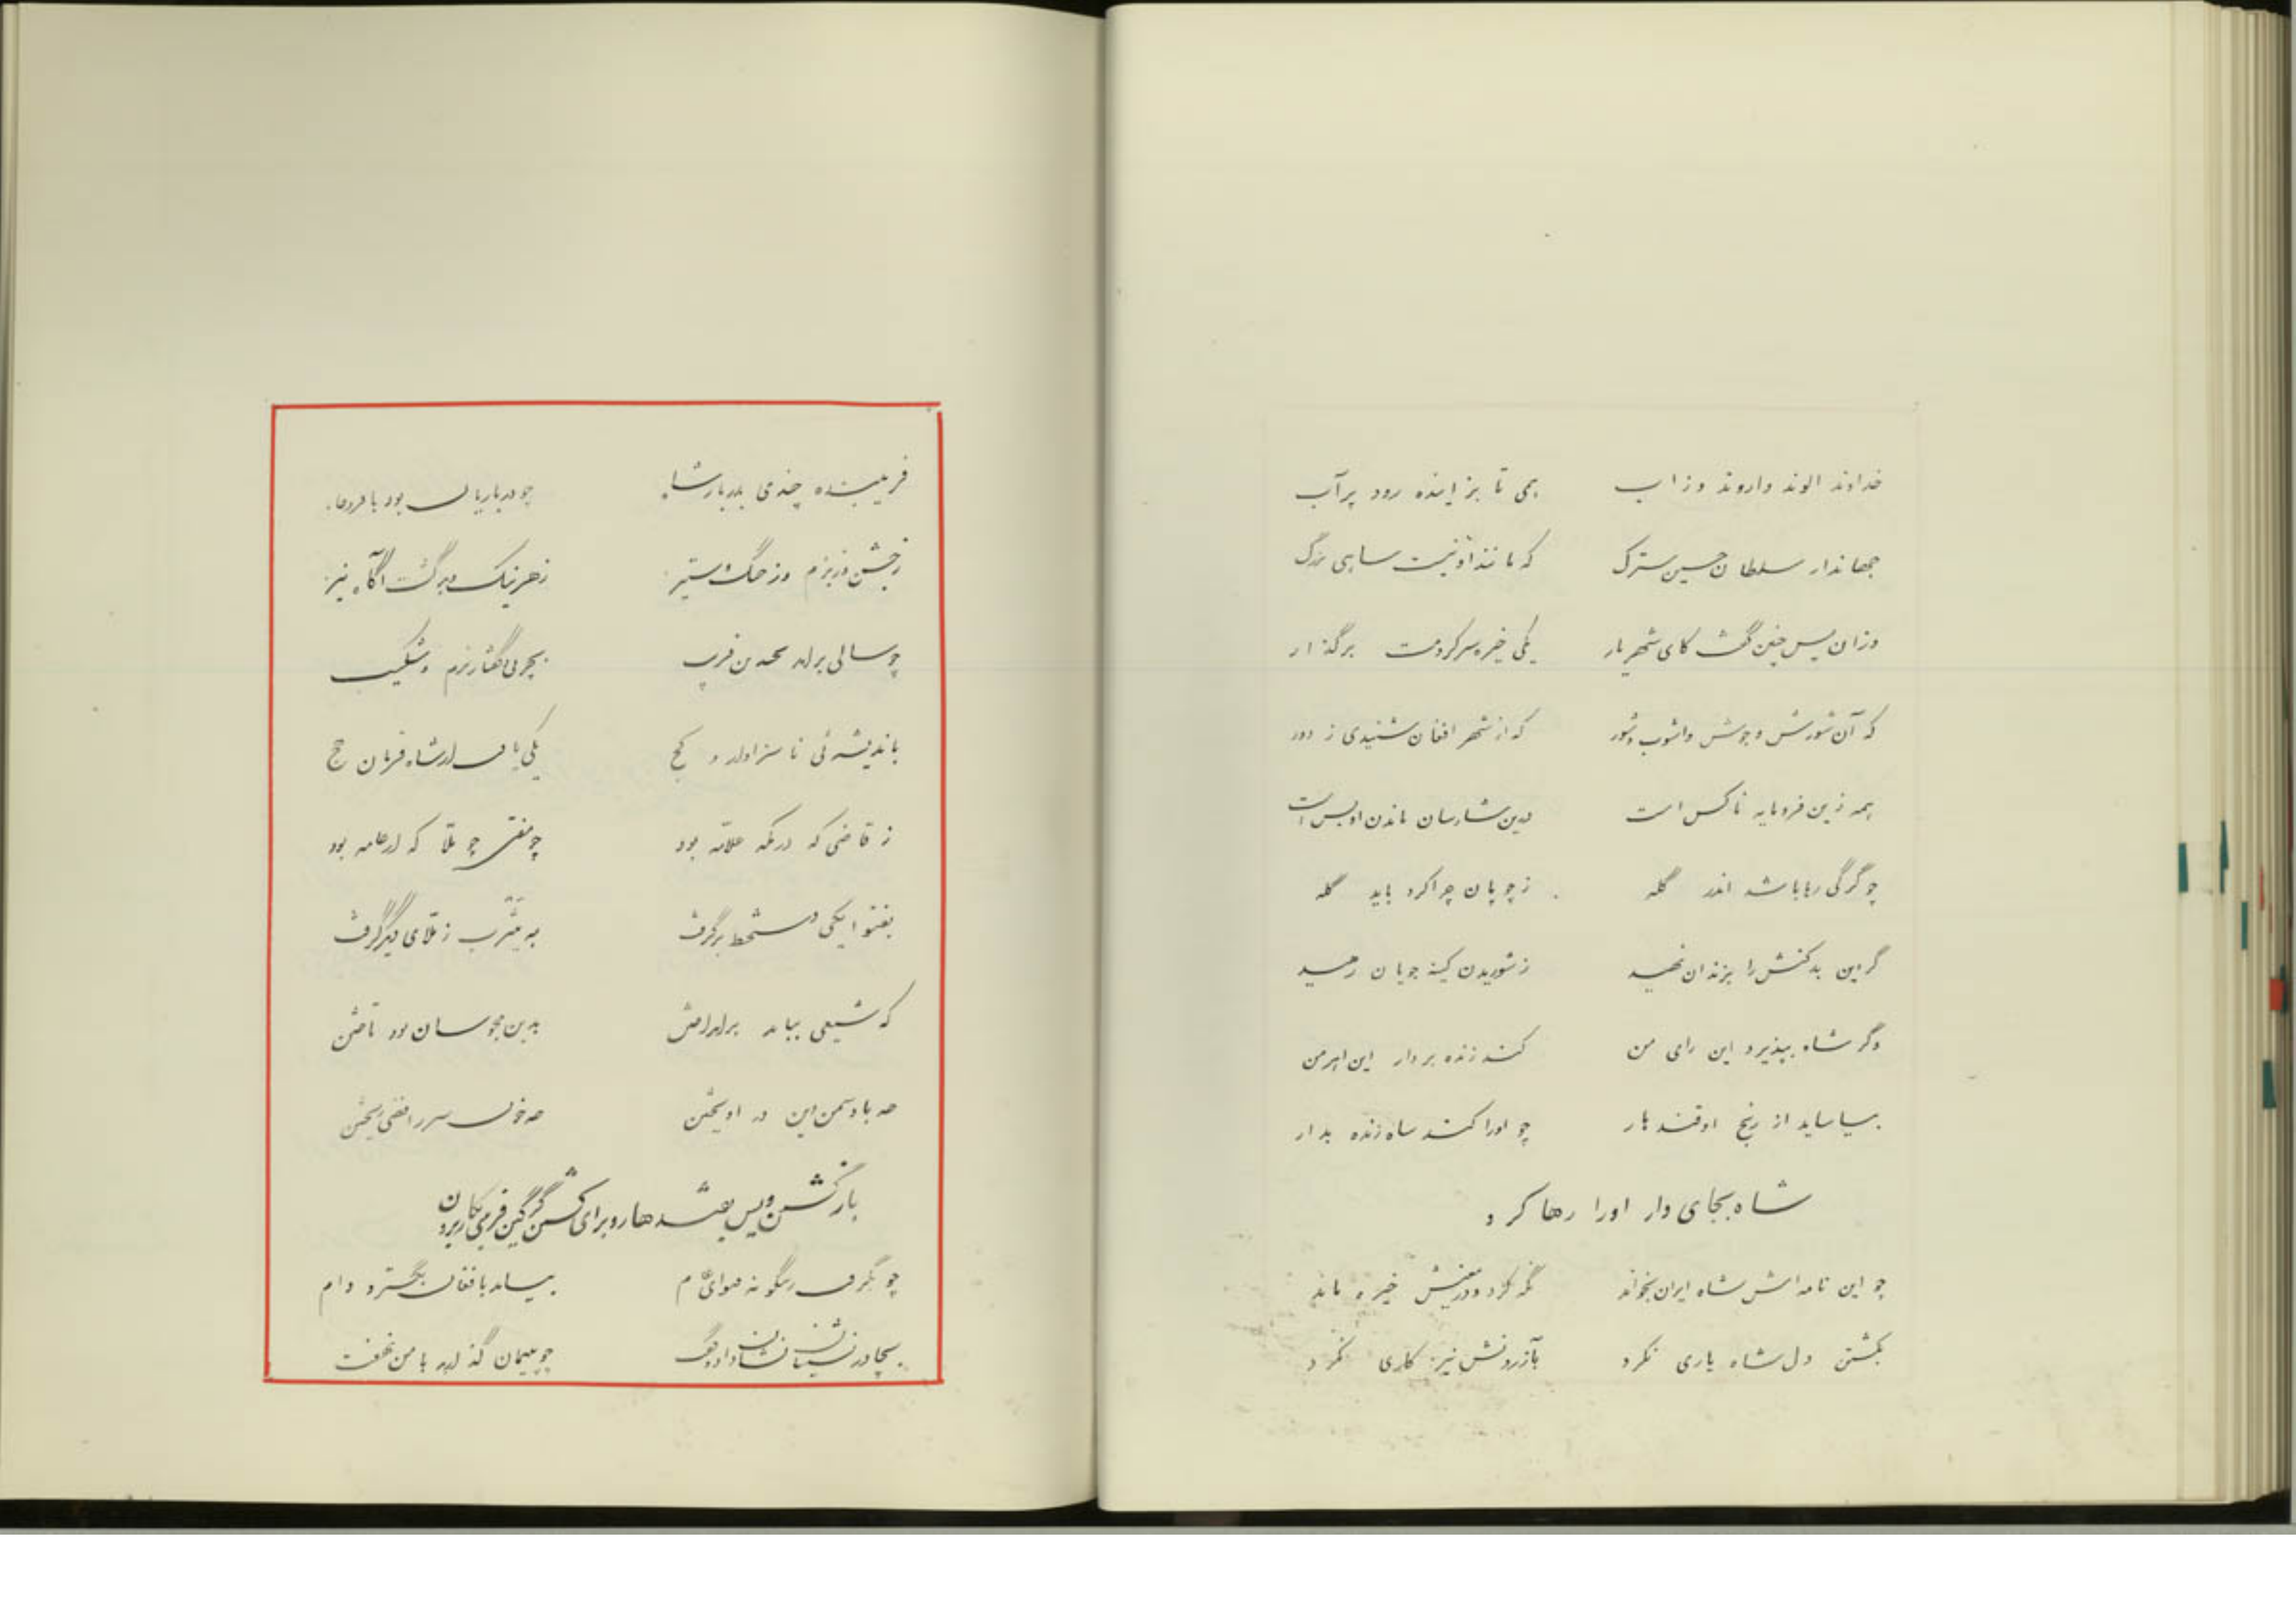 خداوند الوند و اروند و زاب همی تا بزاینده رود پر آب
جهاندار سلطان حسین سترک که مانند او نیست شاهی بزرگ
وزان پس چنین گفت کای شهریار یکی خیره سر کردمت برگذار
که آن شورش و جوشش و اشوب و شور که از شهر افغان شنیدی ز دور
همه زین فرومایه ناکس است درین شارسان ماندن او بس است
چو گرگی رها باشد اندر گله ز چوپان چرا کرد باید گله
گر این بدکنش را بزندان نهید ز شوریدن کینه جویان رهید
وگر شاه بپذیرد این رای من کند زنده بردار این اهرمن
بیاساید از رنج او قندهار چو اورا کند شاه زنده بدار
شاه بجای دار اورا رها کرد
چو این نامه اش شاه ایران بخواند نگه کرد و در خیره ماند
بکشتن دل شاه یاری نکرد بآزردنش نیز کاری نکرد
فریبنده چندی بدربار شاه چو درباریان بود با
ز جشن و ز بزم و ز جنگ و ستیز ز هر نیک و بد گشت آگاه نیز
چو سالی برآمد بدین فریب بچربی گفتار نرم و شکیب
باندیشه ئی ناسزاوار و کج یکی یافت از شاه فرمان حج
ز قاضی که در مکه علامه بود چو مفتی چو ملا که در عامه بود
بفتوا یکی دستخط برگرفت به یثرب ز ملای دیگر گرفت
که شیعی بباید برانداختن بدین مجوسان بود تاختن
چه با دشمن دین در آویختن چه خون سر رافضی ریختن
بازگشتن ویس بقندهار و برای کشتن گرگین فریبی بکار بردن
چو بگرفت زینگونه فتوای عام بیامد بافغان بگسترد دام
چو پیمان گذارید با من نهفت